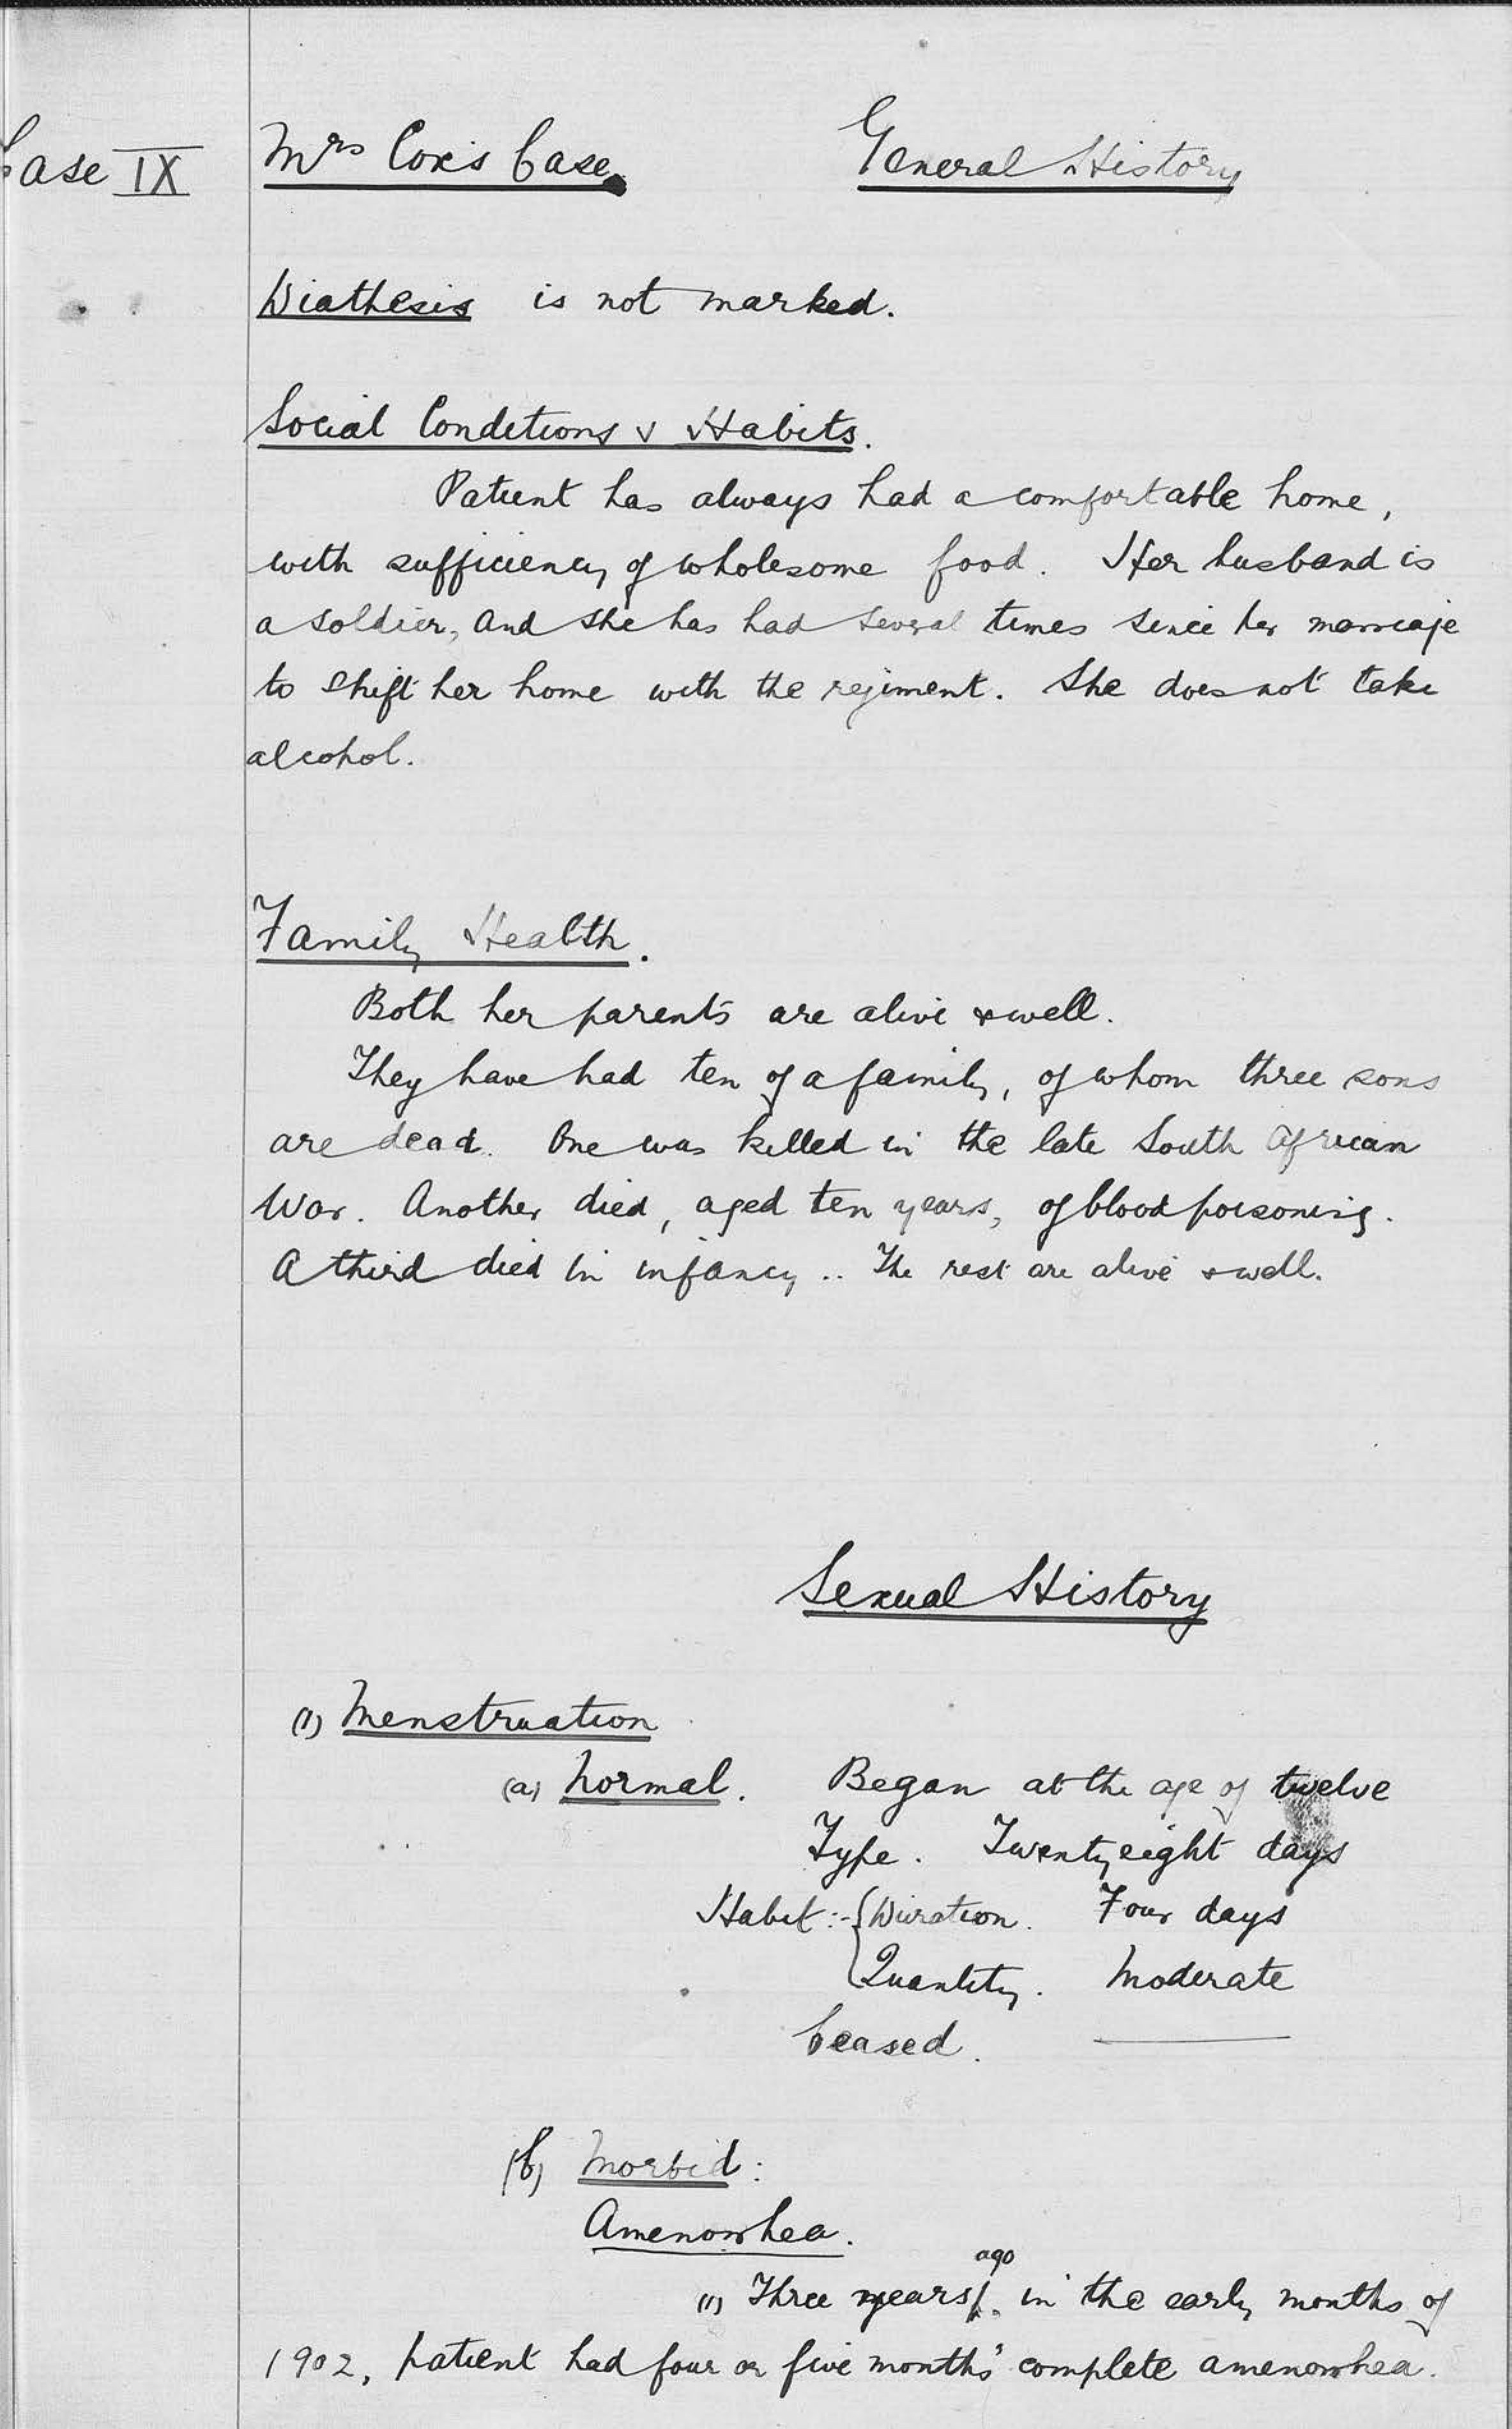 Case IX Mrs Cox's Case. General History
Diathesis is not marked.
Social Conditions & Habits.
Patient has always had a comfortable home,
with sufficiency of wholesome food. Her husband is
a soldier, and she has had several times since her marriage
to shift her home with the regiment. She does not take
alcohol.
Family Health.
Both her parents are alive & well.
They have had ten of a family, of whom three sons
are dead. One was killed in the late South African
War. Another died, aged ten years, of blood poisoning.
A third died in infancy.. The rest are alive & well.
Sexual History
(1) Menstruation
(a) Normal. Began at the age of twelve
Type. Twenty eight days
Habit:- { Duration. Four days
Quantity. Moderate
Ceased. ———
(b) Morbid:
Amenorrhea.
(1) Three years ago in the early months of
1902, patient had four or five months' complete amenorrhea.